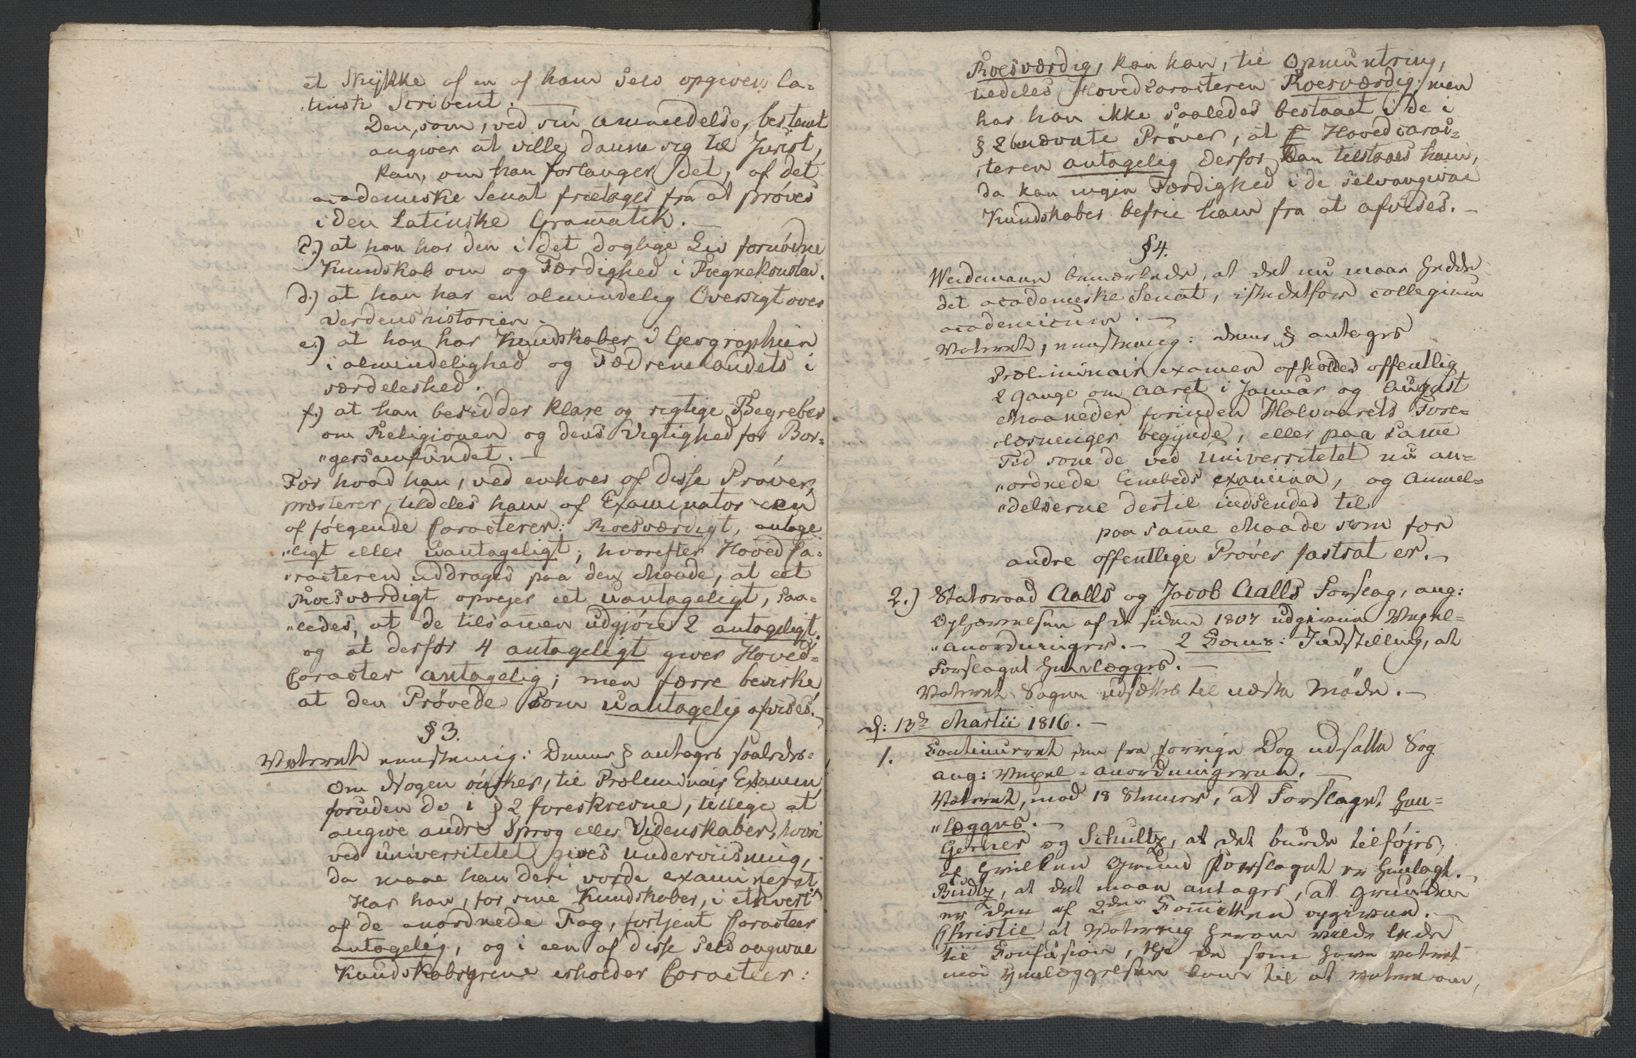 et Stykke af en af ham selv opgiven La-
tinsk Scribent.
Den, som, ved sin anmeldelse, bestemt
angiver at ville danne sig til Jurist,
kan, om han forlanger det, af det
academiske Senat fritages fra at prøves
i den Latinske Gramatik.
c.) at han har den i det daglige Liv fornødne
Kundskab om og Færdighed i Regnekonsten.
d.) at han har en almindelig Oversigt over
Verdenshistorien
e.) at han har Kundskaber i Geographien
i almindelighed og Fædrenelandets i
særdeleshed.
f.) at han besidder klare og rigtige Begreber
om Religionen og dens Vigtighed for Bor-
"gersamfundet. —
For hvad han, ved enhver af disse Prøver,
præsterer, tildeles ham af Examinator een
af følgende Caracterer: Roesværdigt, antage
"ligt eller uantageligt; hvorefter Hoved Ca-
racteren uddrages paa den Maade, at eet
Roesværdigt opvejer eet uantageligt, saa-
"ledes, at de tilsamen udgjøre 2 antageligt.
og at derfor 4 antageligt giver Hoved-
Caracter antagelig; men færre bevirke
at den Prøvede som uantagelig afvises.
§ 3.
Voteret eenstemig: Denne § antages saaledes:
Om Nogen ønsker, til Præliminair Examen
foruden de i § 2 foreskrevne, tillige at
angive andre Sprog eller Videnskaber, hvori
ved universitetet gives underviisning,
da maae han deri vorde examineret
Har han, for sine Kundskaber, i ethvert
af de anordnede Fag, fortjent Caracteer
antagelig, og i een af disse selvangivne
Kundskabsgrene erholder Caracteer:
Roesværdig, kan han, til Opmuntring,
tildeles Hovedcaracteren Roesværdig; men
har han ikke saaledes bestaaet i de i
§ 2 benævnte Prøver, at Hovedcarac-
teren antagelig derfor kan tilstaaes ham,
da kan ingen Færdighed i de selvangivne
Kundskaber befrie ham fra at afvises. —
§ 4.
Weidemann bemærkede, at det nu maae hedde
det academiske Senat, istedetfor collegium
academicum. —
Voteret, eenstemig: denne § antages
Præliminair examen afholdes offentlig
2 Gange om Aaret i Januar og August
Maaneder forinden Halvaarets Fore-
læsninger begynde, eller paa same
Tid some de ved Universitetet nu an-
"ordnede Embeds examina, og Anmel-
"delserne dertil indsendes til
paa same Maade som for
andre offentlige Prøver fastsat er. —
2.) Statsraad Aalls og Jacob Aalls Forslag, ang:
Ophævelsen af de siden 1807 udgivne Vexel-
"anordninger. — 2 Comit: Indstilling, at
Forslaget henlægges. —
Voteret Sagen udsættes til næste Møde. —
d: 13de Martii 1816. —
1. Continueret den fra forrige Dag udsatte Sag
ang: Vexel-anordningerne. —
Voteret, mod 18 Stemmer, at Forslaget hen-
"lægges. —
Gerner og Schultz, at det burde tilføjes,
af hvilken Grund Forslaget er henlagt. —
Budtz, at det maae antages, at Grunden
er den af 2den Comitten opgivne. —
Christie at Votering herom vilde lede
til Confusion, thi de som have voteret
mod Henlæggelsen kom til at votere om,